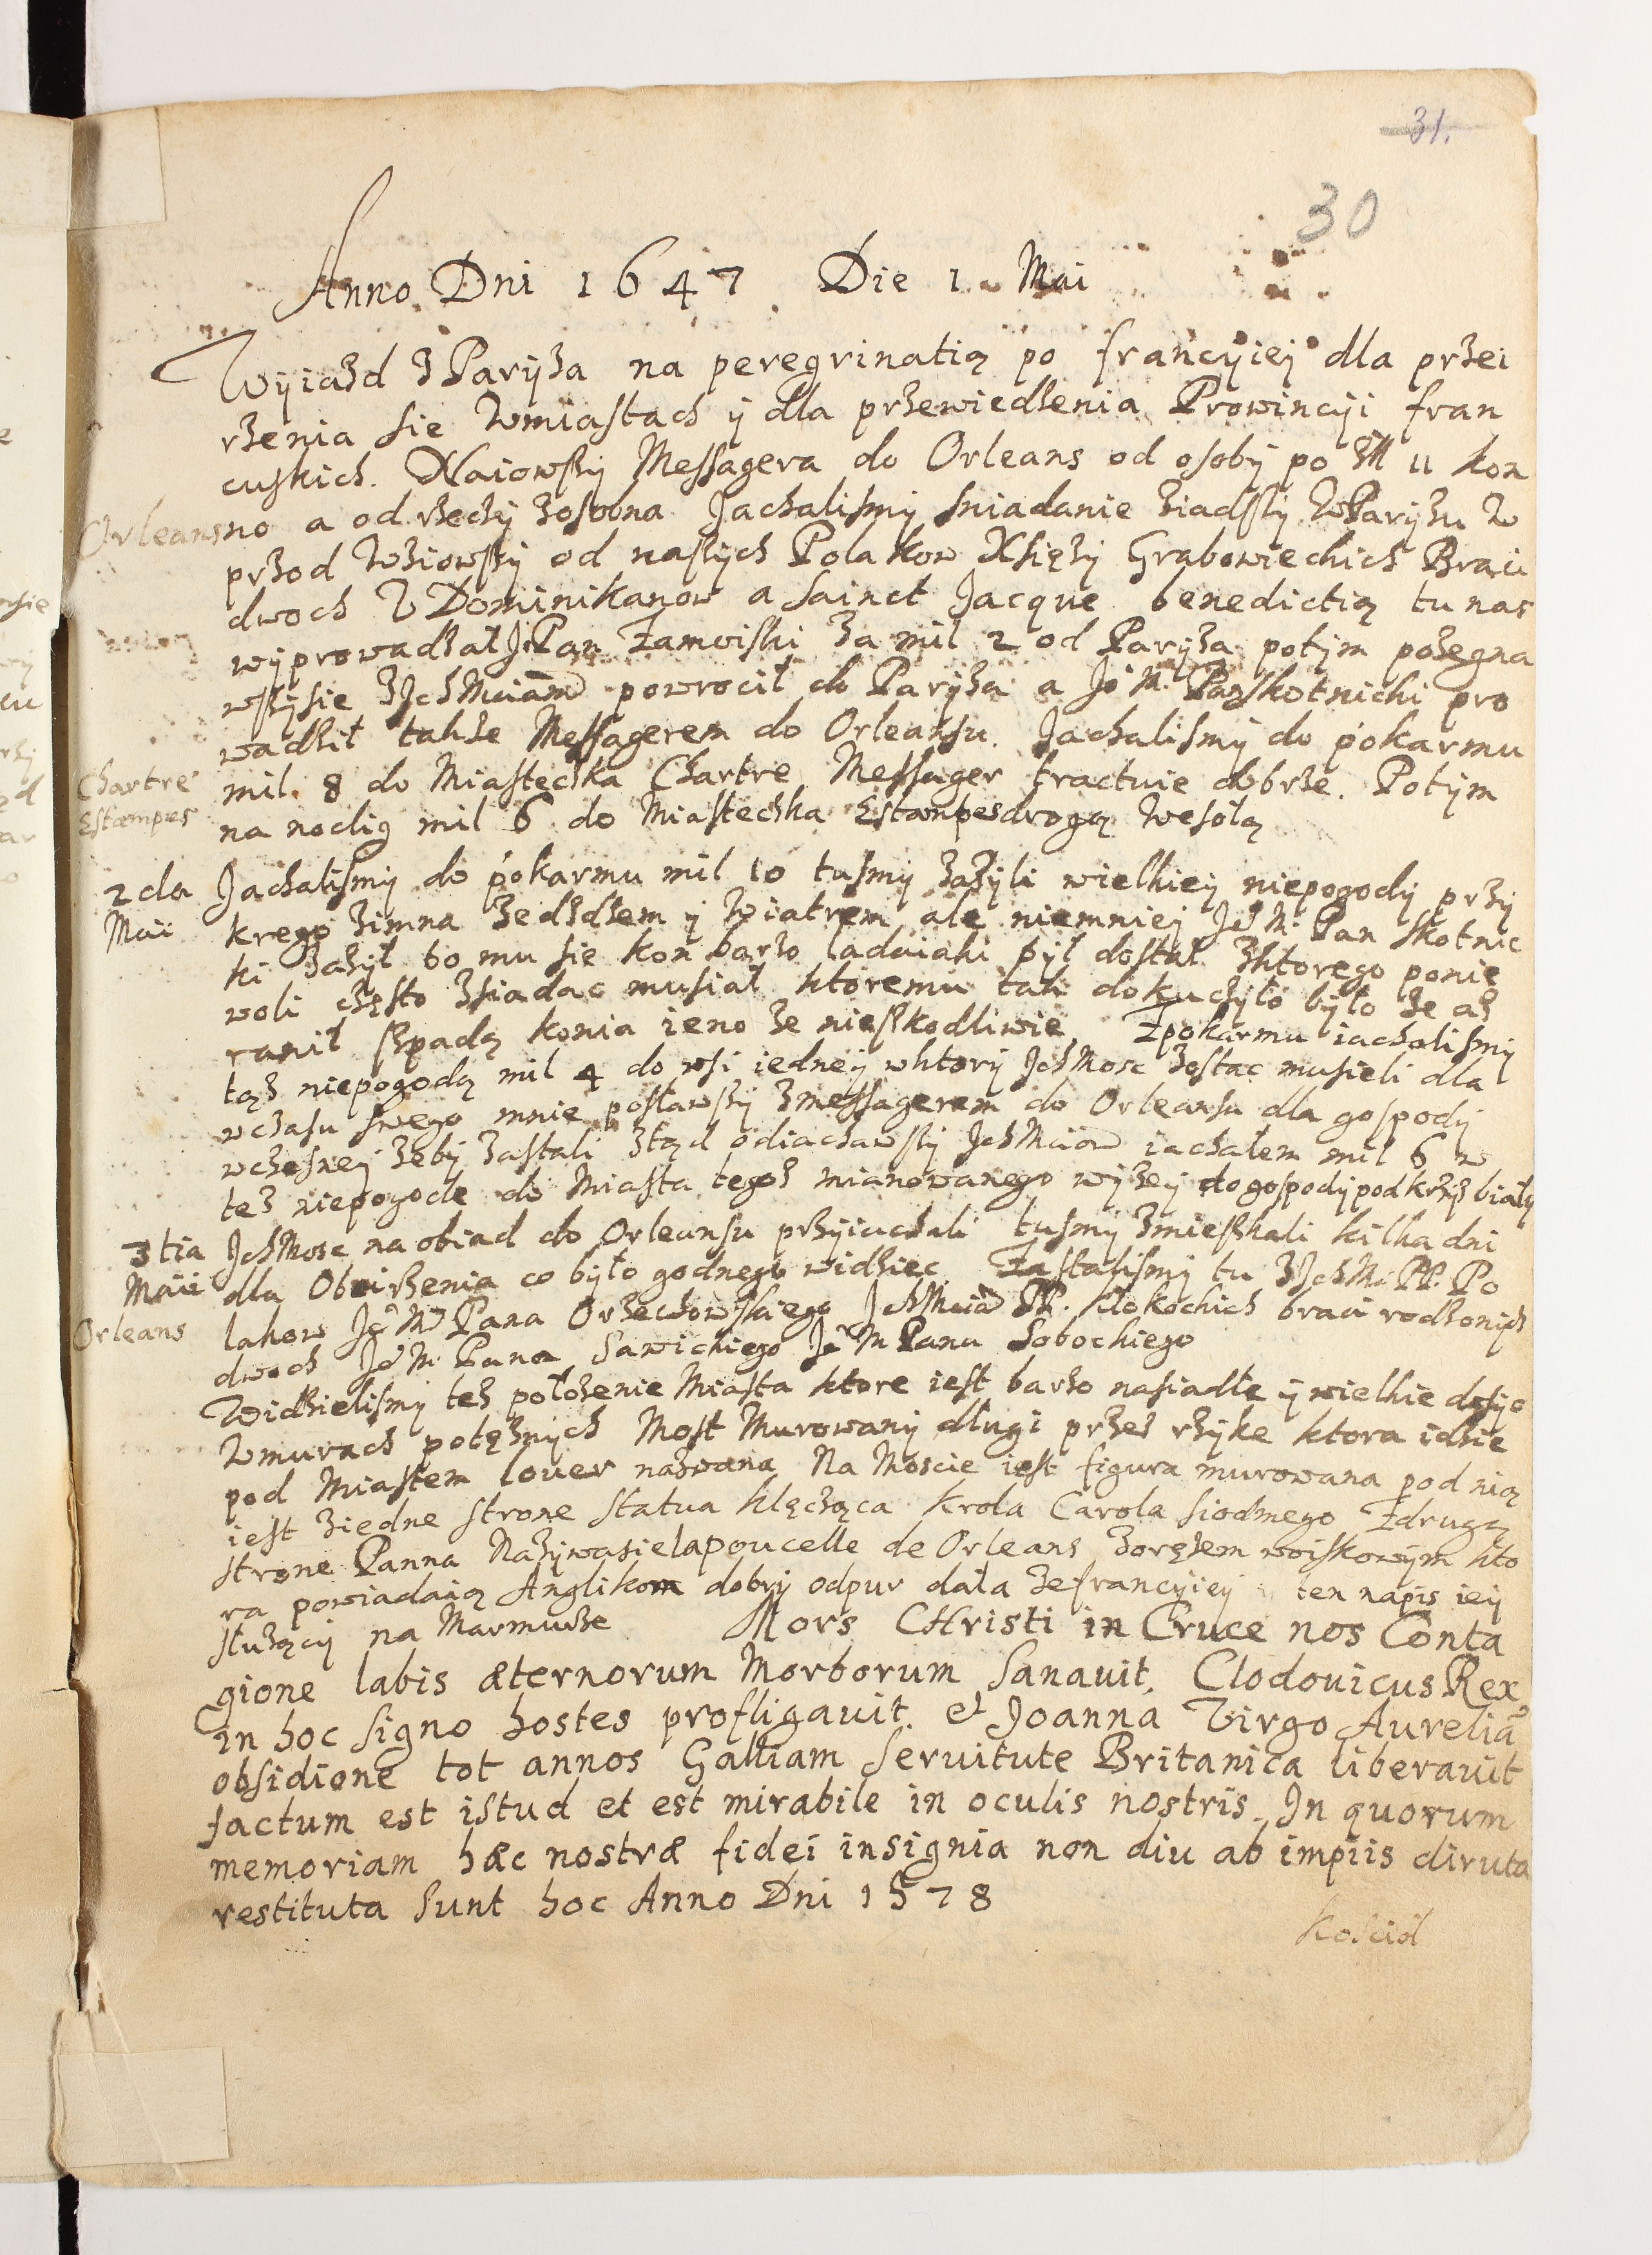 31.
30
Anno Dni 1647 Die 1. Mai
Wyiazd z Paryza na peregrinatią po francyiey dla przei
rzenia sie w miastach y dla przewiedzenia Prowincyi fran
cuskich. Naiowszy Messagera do Orleans od osoby po 11 kon
Orleans
no a od rzeczy zosobna Jachalismy sniadanie ziadszy w Paryzu w
przod wziowszy od naszych Polakow Xsięzy Grabowieckich Braci
dwoch v Dominikanow a Sainct Jacque benedictią tu nas
wyprowadzał Je Pan Zamoiski za mil 2 od Paryza potym pozegna
wszysie z Jch Mciami powrocił do Paryza a Jeo M. Pan Skotnicki pro
wadził takze Messagerem do Orleansu. Jachalismy do pokarmu
Chartre
mil. 8 do Miasteczka Chartre Messager tractuie dobrze. Potym
Estampes
na noclig mil 6 do Miasteczka Estampes drogą wesołą
2da Jachalismy do pokarmu mil 10 tusmy zazyli wielkiey niepogody przy
Maii krego zimna ze dzdzem y wiatrem ale niemniey Je M. Pan Skotnic
ki zazył bo mu sie kon barzo ladaiaki był dostał z ktorego ponie
woli często zsiadac musiał ktoremu tak dokuczyło było ze az
ranił szpadą konia ieno ze nieszkodliwie Z pokarmu iachalismy
tąz niepogodą mil 4 do wsi iedney w ktory Jch Mosc zostac musieli dla
wczasu swego mnie posławszy z messagerem do Orleansu dla gospody
wczesney zeby zastali ztąd odiachawszy Jch Mciow iachałem mil 6 w
tez niepogode do Miasta tegoz mianowanego wyzey do gospody pod krzyz biały
3tia Jch Mosc na obiad do Orleansu przyiachali tusmy zmieszkali kilka dni
Maii dla Obeirzenia co było godnego widziec Zastalismy tu z Jch M. PP. Po
Orleans
lakow Jeo M Pana Orzechowskiego Jch Mciow PP. Klokockich braci rodzonych
dwoch Je M. Pana Sawickiego Je M Pana Sobockiego
Widzielismy tez połozenie Miasta ktore iest barzo nasiadłe y wielkie dosyc
w murach potęznych Most Murowany długi przez rzyke ktora idzie
pod Miastem louer nazwana Na Moscie iest figura murowana pod nią
iest ziedne strone statua klęcząca Krola Carola siodmego Zdrugą
strone Panna Nazywasie la poucelle de Orleans z oręzem woiskowym kto
ra powiadaią Anglikom dobry odpur dała ze francyiey ten napis iey
słuzący na Marmurze Mors CHristi in Cruce nos Conta
gione labis æternorum Morborum Sanauit, Clodouicus Rex
in hoc Signo hostes profligauit. et Joanna Virgo Aureliã
obsidione tot annos Galliam Seruitute Britanica liberauit
factum est istud et est mirabile in oculis nostris. In quorum
memoriam hæc nostræ fidei insignia non diu ab impiis diruta
restituta Sunt hoc Anno Dni 1578
Kosciół